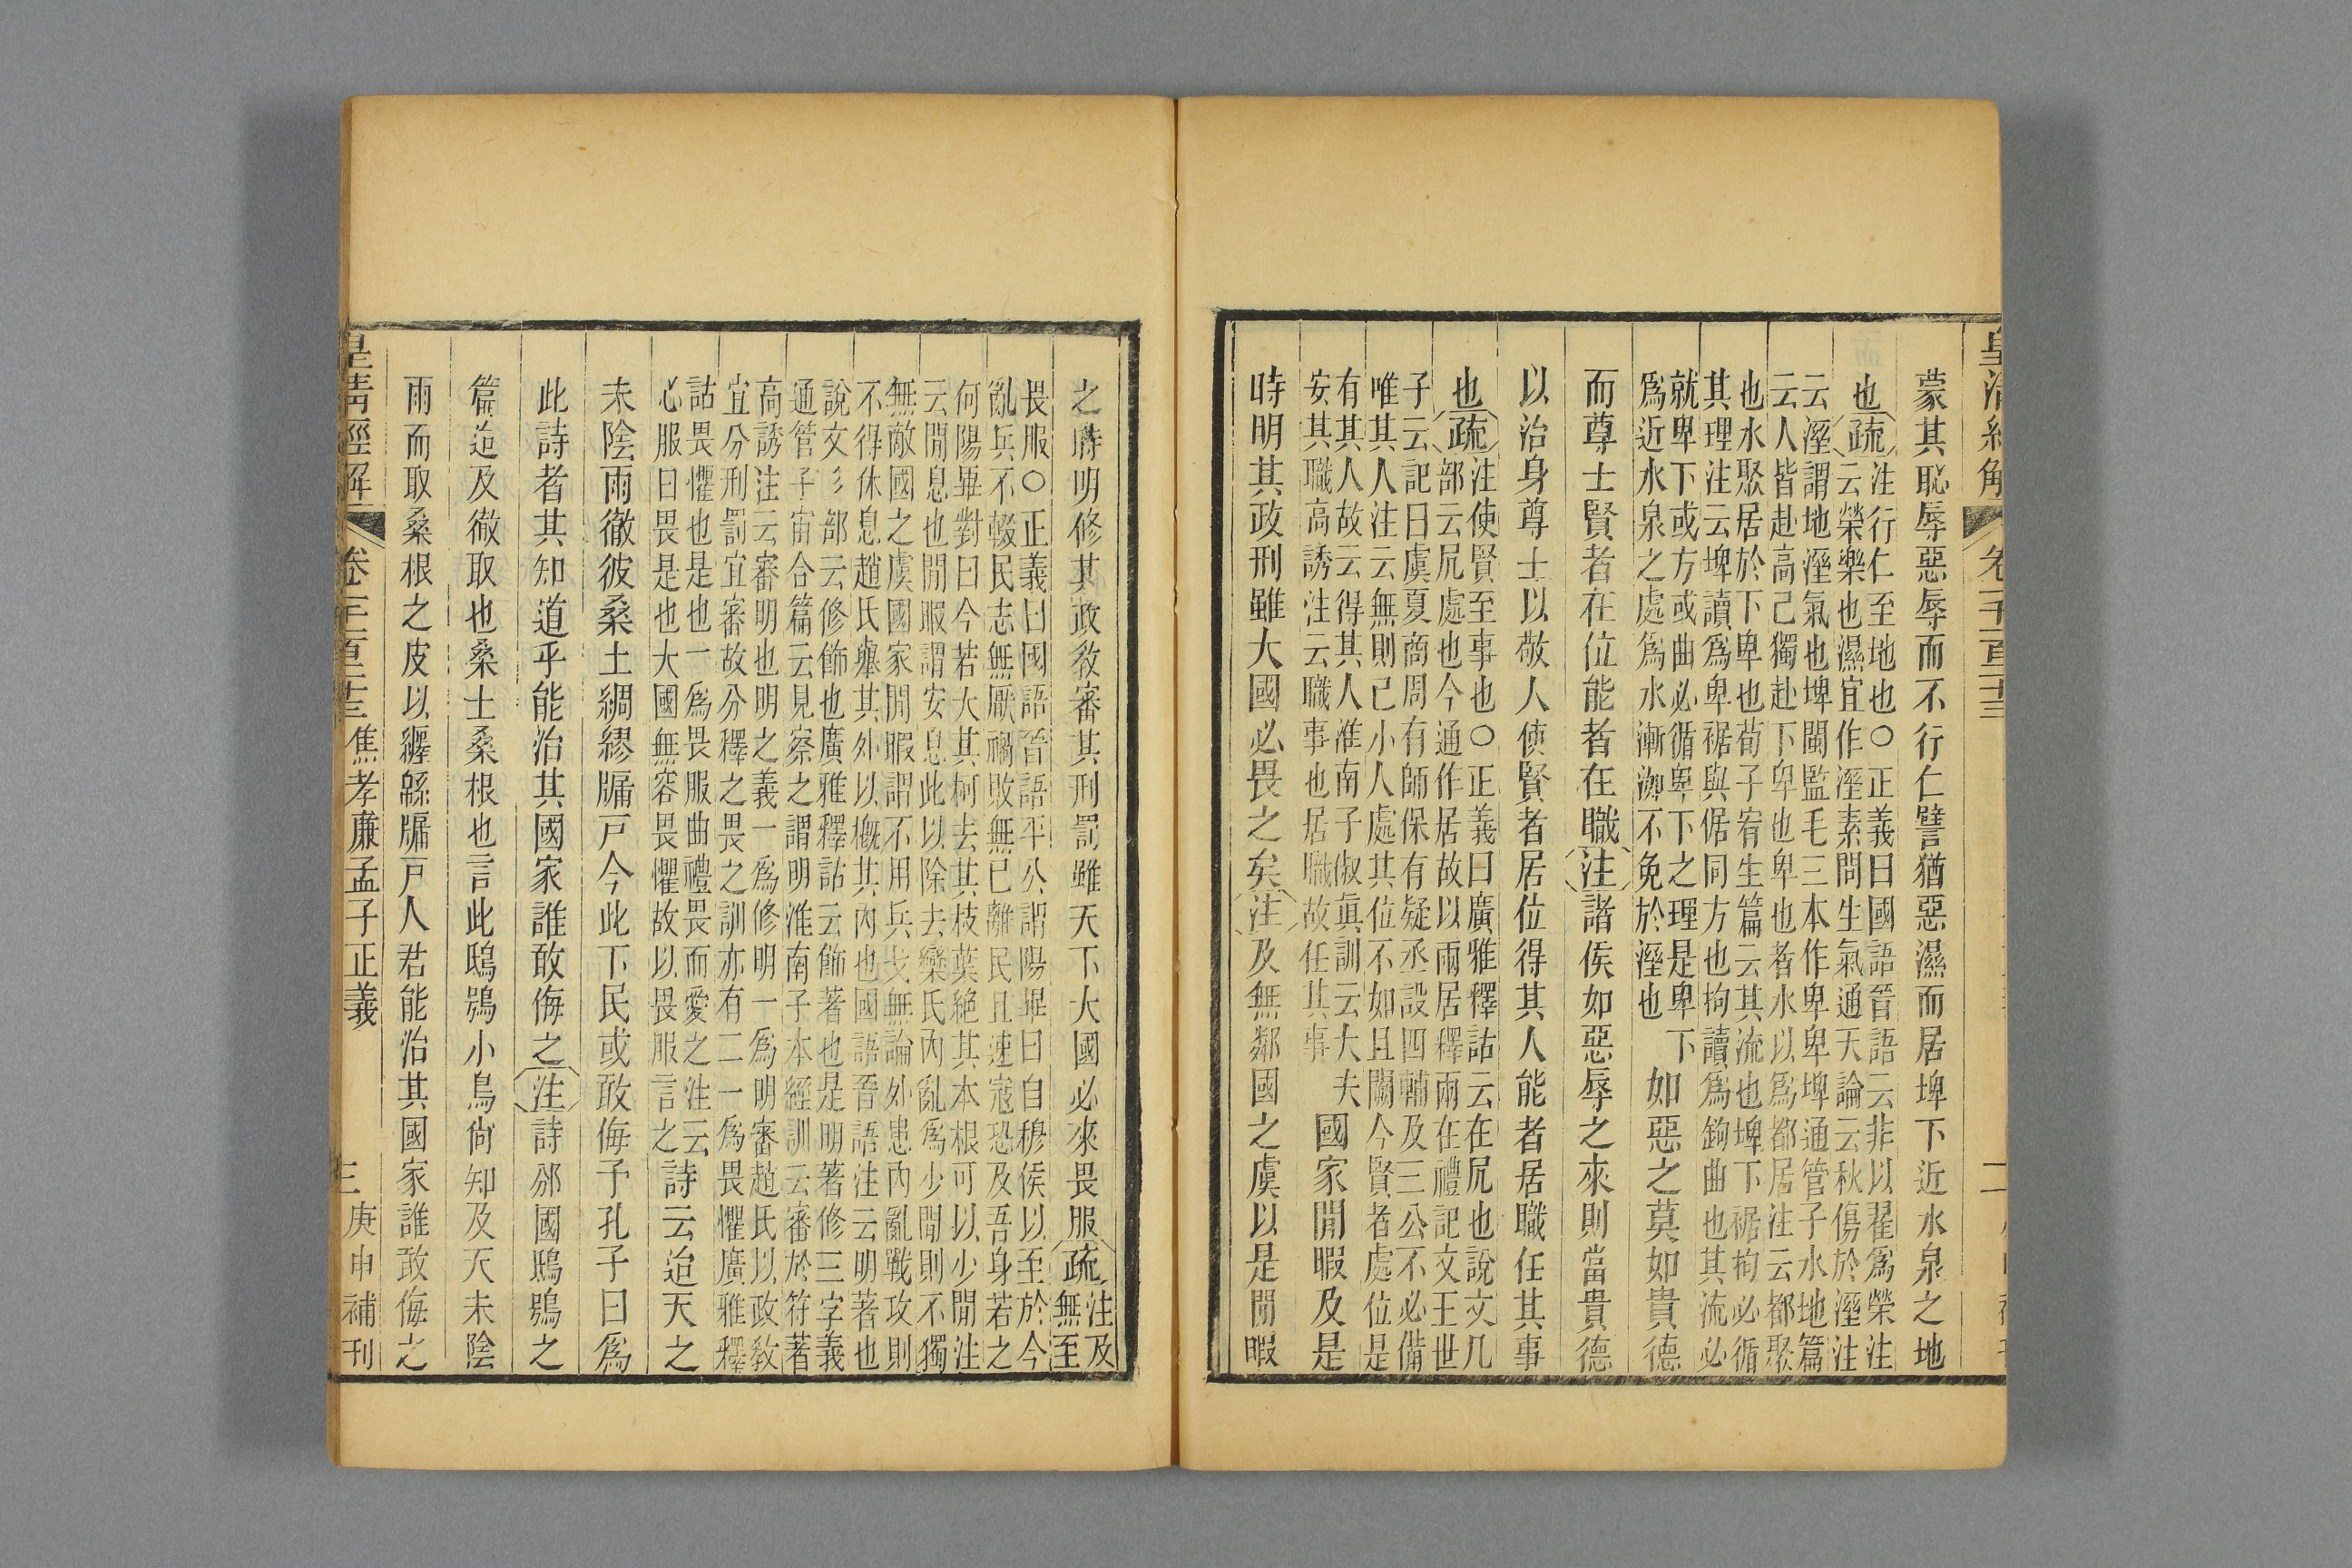 皇清經解 卷一千一百二十三
蒙其恥辱惡辱而不行仁譬猶惡濕而居埤下近水泉之地
也疏注行仁至地也○正義曰國語晉語云非以翟爲榮注
云榮樂也濕宜作溼素問生氣通天論云秋傷於溼注
云溼謂地溼氣也埤閩監毛三本作卑卑埤通管子水地篇
云人皆赴高己獨赴下卑也卑也者水以爲都居注云都聚
也水聚居於下卑也荀子宥生篇云其流也埤下裾拘必循
其理注云埤讀爲卑裾與倨同方也拘讀爲鉤曲也其流必
就卑下或方或曲必循卑下之理是卑下
爲近水泉之處爲水漸洳不免於溼也
如惡之莫如貴德
而尊士賢者在位能者在職注諸侯如惡辱之來則當貴德
以治身尊士以敬人使賢者居位得其人能者居職任其事
也疏注使賢至事也○正義曰廣雅釋詁云在凥也說文几
部云凥處也今通作居故以兩居釋兩在禮記文王世
子云記曰虞夏商周有師保有疑丞設四輔及三公不必備
唯其人注云無則已小人處其位不如且闕今賢者處位是
有其人故云得其人淮南子俶眞訓云大夫
安其職高誘注云職事也居職故任其事
國家閒暇及是
時明其政刑雖大國必畏之矣注及無鄰國之虞以是閒暇
之時明修其政教審其刑罰雖天下大國必來畏服疏注及
無至
畏服○正義曰國語晉語平公謂陽畢曰自穆侯以至於今
亂兵不輟民志無厭禍敗無已離民且速寇恐及吾身若之
何陽畢對曰今若大其柯去其枝葉絕其本根可以少閒注
云閒息也閒暇謂安息此以除去欒氏內亂爲少閒則不獨
無敵國之虞國家閒暇謂不用兵戈無論外患內亂戰攻則
不得休息趙氏舉其外以槪其內也國語晉語注云明著也
說文彡部云修飾也廣雅釋詁云飾著也是明著修三字義
通管子宙合篇云見察之謂明淮南子本經訓云審於符著
高誘注云審明也明之義一爲修明一爲明審趙氏以政教
宜分刑罰宜審故分釋之畏之訓亦有二一爲畏懼廣雅釋
詁畏懼也是也一爲畏服曲禮畏而愛之注云
心服曰畏是也大國無容畏懼故以畏服言之
詩云迨天之
未陰雨徹彼桑土綢繆牖戸今此下民或敢侮予孔子曰爲
此詩者其知道乎能治其國家誰敢侮之注詩邠國鴟鴞之
篇迨及徹取也桑土桑根也言此鴟鴞小鳥尙知及天未陰
雨而取桑根之皮以纏緜牖戸人君能治其國家誰敢侮之
皇清經解 卷一千一百二十三 焦孝廉孟子正義 三 庚申補刊